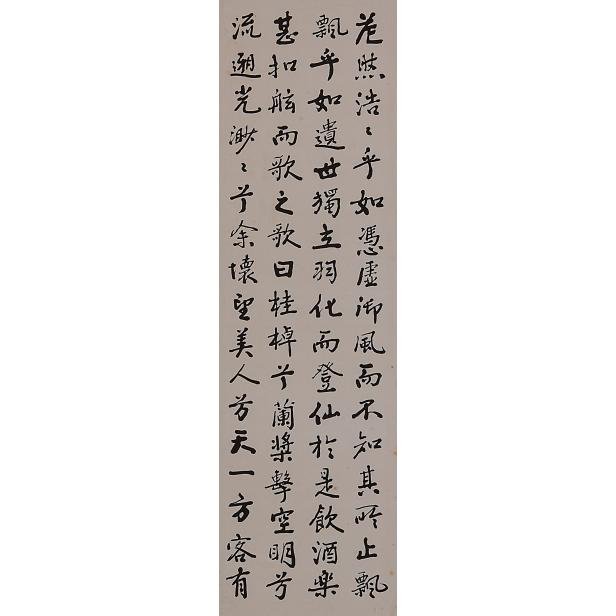 茫然浩〻乎如憑虛御風而不知其所止飄
飄乎如遺世獨立羽化而登仙於是飲酒樂
甚扣舷而歌之歌曰桂棹兮蘭槳擊空明兮
流遡光渺〻兮余壞望美人兮天一方客有